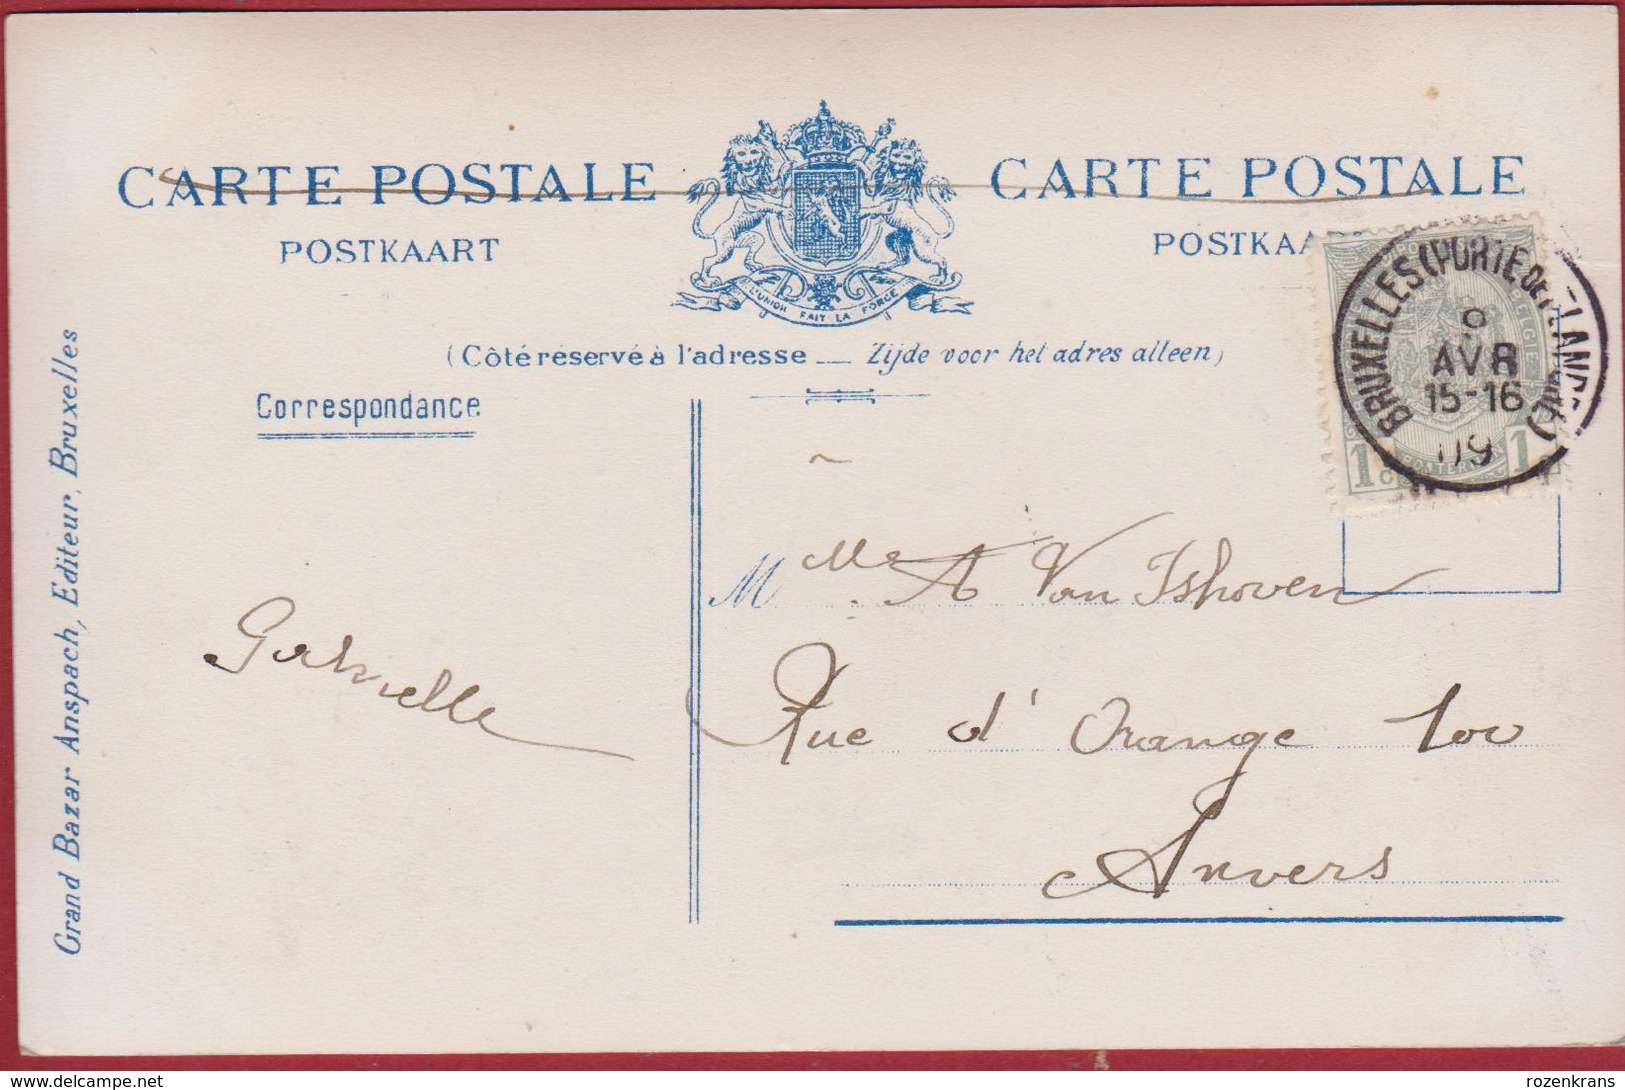 CARTE POSTALE
CARTE POSTALE
POSTKAART
POSTKAA
L'UNION FAIT LA FORCE
(Côté réservé à l'adresse — Zijde voor het adres alleen)
Correspondance
BRUXELLES (PORTE DE
8
AVR
15-16
09
BELGIE
1c 1
Grand Bazar Anspach, Editeur, Bruxelles
Mlle A Van Ishoven
Gabrielle
Rue d'Orange 100
Anvers
delcampe.net
rozenkrans